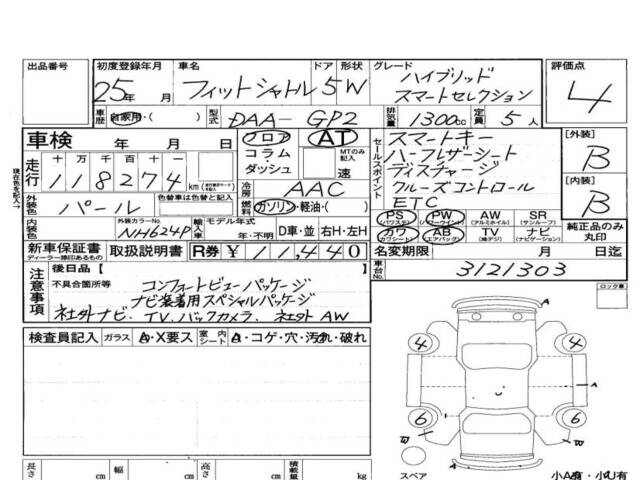 出品番号 初度登録年月 車名 ドア 形状 グレード 評価点
25年 月 フィットシャトル 5 W ハイブリッド
スマートセレクション 4
車歴 自家用・( ) 型式 DAA-GP2 排気量 1300cc 定員 5人
車検 年 月 日 フロア AT スマートキー [外装]
走行 十万千百十一 コラム・ MTのみ記入 セールスポイント ハーフレザーシート B
118274km ダッシュ 速 ディスチャージ
外装色 パール 色替車は色替と記入 冷房 AAC クルーズコントロール [内装]
燃料 ガソリン・軽油・( ) ETC B
内装色 外装カラーNo. NH624P 輸入車 モデル年式 年・不明 D車・並 右H・左H
PS (パワステ) PW (パワーウィンドウ) AW (アルミホイル) SR (サンルーフ) 純正品のみ丸印
カワ (カワシート) AB (エアバッグ) TV (地デジ) ナビ (ナビゲーション)
新車保証書 ディーラー捺印あるもの 取扱説明書 R券 ¥11,440 名変期限 月 日迄
注意事項 後日品【 】 車台No. 3121303
不具合箇所等 コンフォートビューパッケージ
ナビ装着用スペシャルパッケージ
社外ナビ. TV. バックカメラ. 社外AW
ロック車
検査員記入 ガラス A・X要ス 室内シート A・コゲ・穴・汚れ・破れ
A
4 4
A
6 6
W W
長さ cm 幅 cm 高さ cm 積載量 kg
スペア 小A有・小U有
現在色を記入→